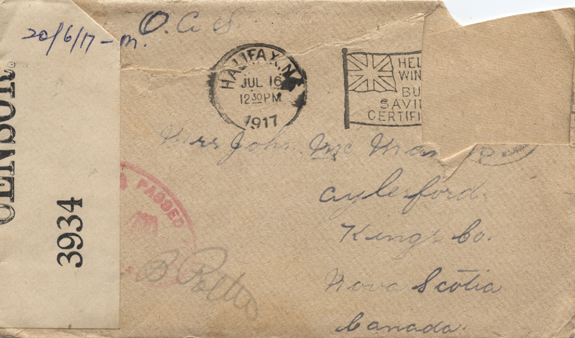 O. A. S.
20/6/17 - m.
HALIFAX, N.S.
JUL 16
12 30 PM
1917
HEL
WIN
BU
SAVI
CERTIFI
CENSOR
3934
PASSED
Mrs John Mc
Aylesford.
Kings Co.
Nova Scotia
Canada.